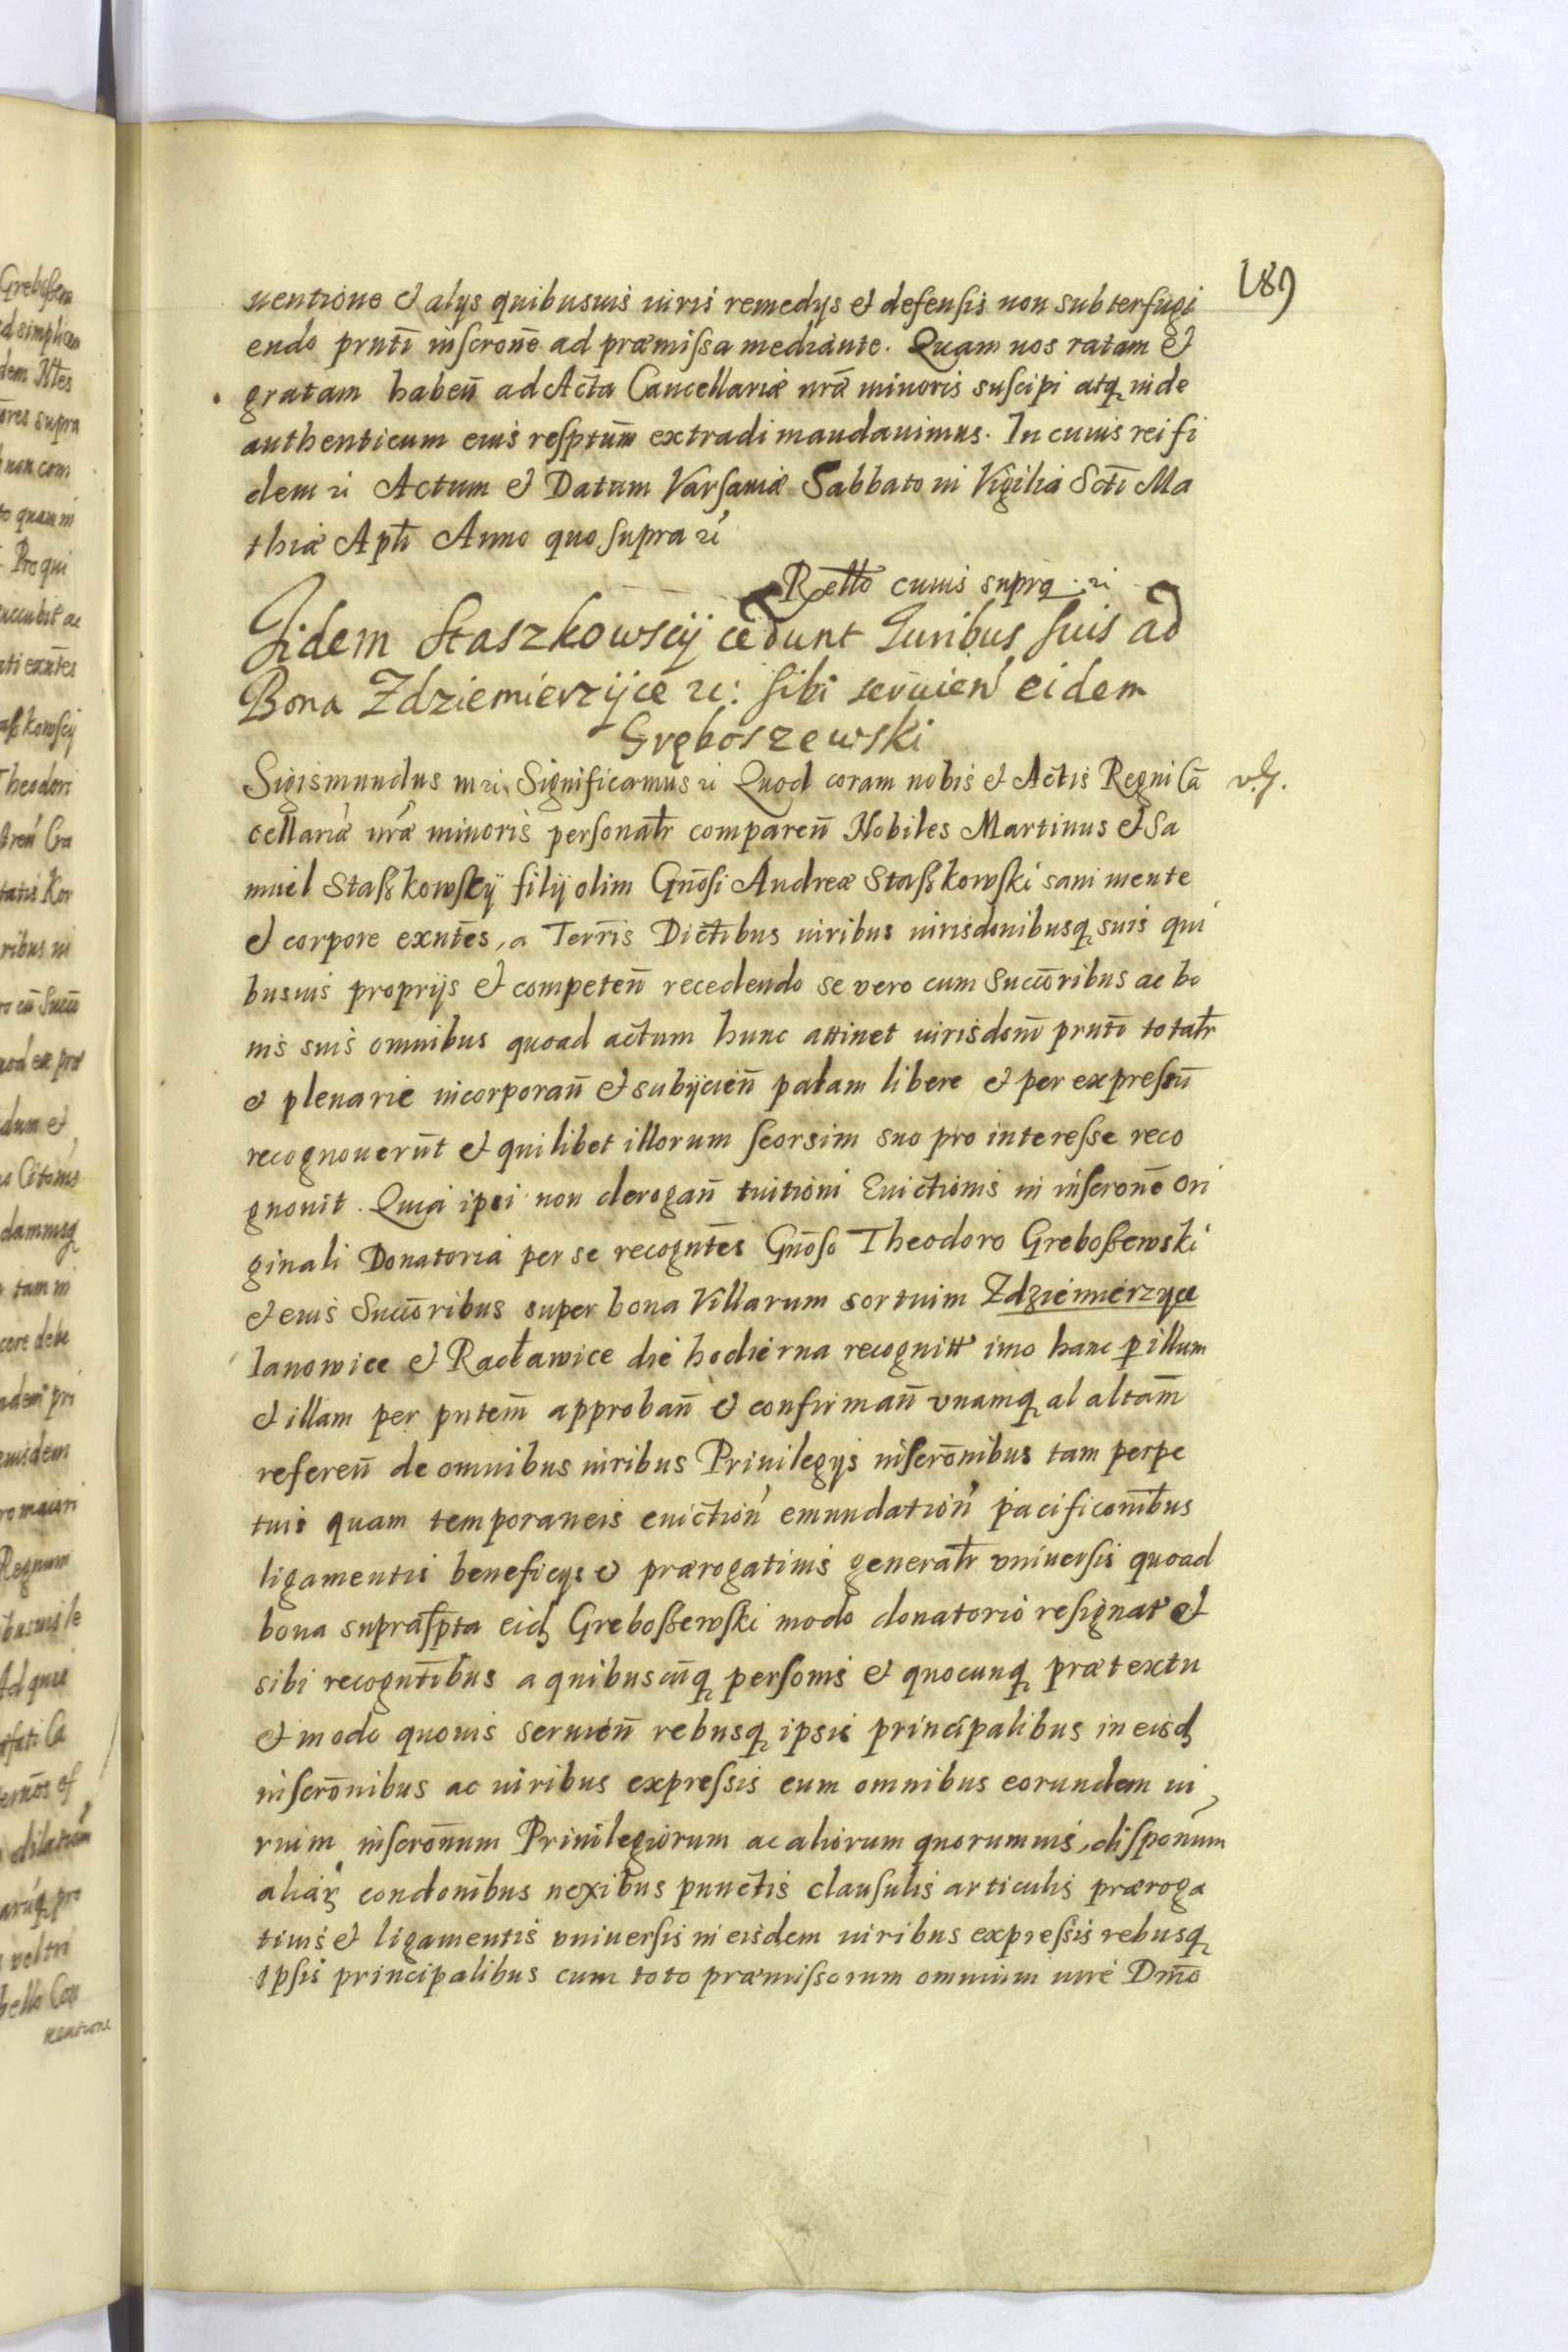 189
uentione et alys quibusuis iuris remedys et defensis non subterfugi
endo pruti inscrone ad præmissa mediante. Quam nos ratam et
gratam habeñ ad Acta Cancellariæ nrã minoris suscipi atq inde
authenticum eius resptum extradi mandauimus. In cuius rei fi
dem zc Actum et Datum Varsauiæ Sabbato in Vigilia Scti Ma
thiæ Apli Anno quo supra zc
Retto cuius supra zc
Iidem Staszkowscij cedunt Iuribus suis ad
Bona Zdziemierzijce zc: sibi seruien eidem
Gręboszewski
Sigismundus III zc. Significamus zc Quod coram nobis et Actis Regni Cã
v.G.
cellariæ nrã minoris personalr compareñ Nobiles Martinus et Sa
muel Staßkowscÿ filÿ olim Gnosi Andreæ Staßkowski sani mente
et corpore exntes, a Terris Dictibus iuribus iurisdonibusq suis qui
busuis proprijs et competeñ recedendo se vero cum Succoribus ac bo
nis suis omnibus quoad actum hunc attinet iurisdoni pruti totalr
et plenarie incorporañ et subijcieñ palam libere et per expressũ
recognouerũt et quilibet illorum seorsim suo pro interesse reco
gnouit. Quia ipsi non derogañ tuitioni Euictionis in inscrone ori
ginali Donatoria per se recogntes Gnoso Theodoro Greboßewski
et eius Succoribus super bona Villarum sortium Zdziemierzyce
Ianowice et Racławice die hodierna recognitt imo hanc p illum
et illam per pntem approbañ et confirmañ vnamq al altam
refereñ de omnibus iuribus Priuilegys inscronibus tam perpe
tuis quam temporaneis euiction emundation pacificonibus
ligamentis beneficys et prærogatiuis generalr vniuersis quoad
bona suprascpta eid Greboßewski modo donatorio resignat et
sibi recogntibus a quibuscũq personis et quocunq prætextu
et modo quouis seruieñ rebusq ipsis principalibus in eisd
inscronibus ac iuribus expressis cum omnibus eorundem iu
rium inscronum Priuilegiorum ac aliorum quorumuis disponum
aliar condonibus nexibus punctis clausulis articulis præroga
tiuis et ligamentis vniuersis in eisdem iuribus expressis rebusq
ipsis principalibus cum toto præmissorum omnium iure Dmo